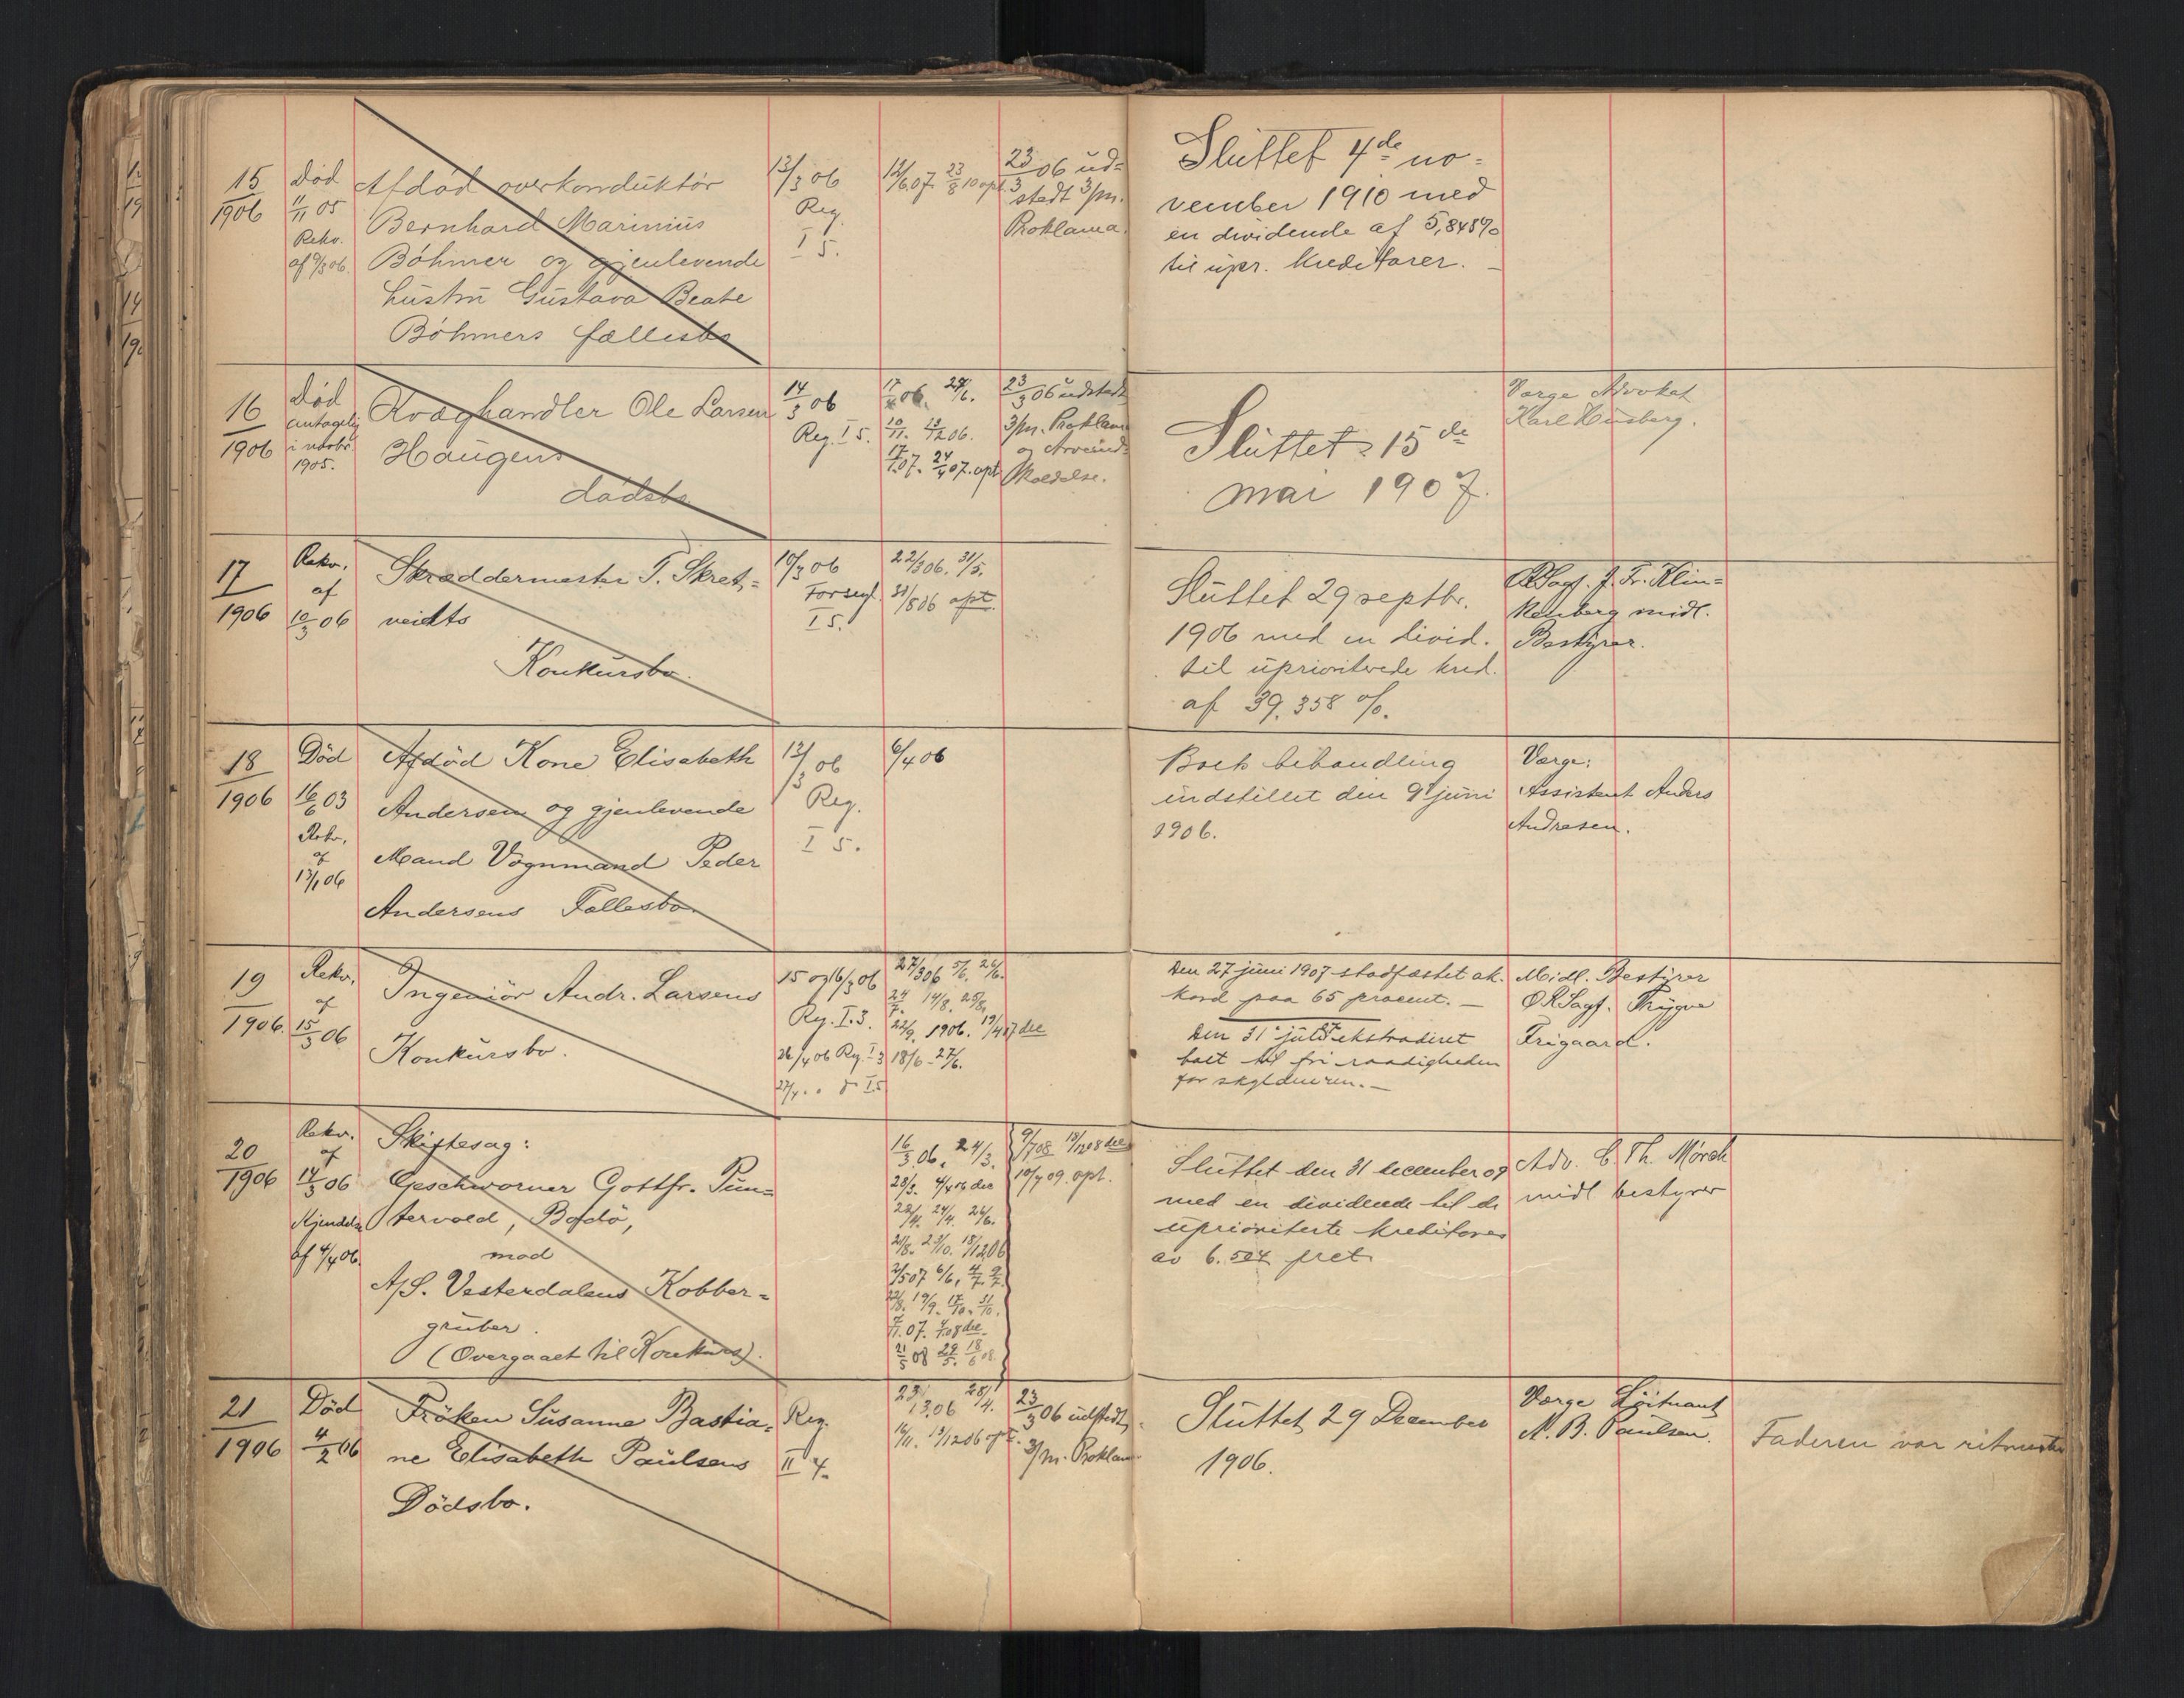 15
1906
Död
11/11 05
Rekv.
af 9/3 06.
Afdöd overkonduktör
Bernhard Marinius
Böhmer og gjenlevende
hustru Gustava Beate
Böhmers fællesbo
13/3 06
Reg.
I 5.
12/6 07. 23/8 10 opt.
23/3 06 ud=
stedt 3/m.
Proklama.
Sluttet 4de no=
vember 1910 med
en dividende af 5,848%
til upr. kreditorer. —
16
1906
Död
antagelig
i novbr.
1905.
Kvæghandler Ole Larsen
Haugens
dödsbo
14/3 06
Reg. I 5.
10/11. 13/12 06.
17/1 07. 24/4 07. opt
23/3 06 udstedt
3/m. Proklam
og Arveind=
kaldelse.
Sluttet 15de
mai 1907.
Værge Advokat
Karl Husberg.
17
1906
Rekv.
af
10/3 06
Skræddermester T. Skret=
veidts
Konkursbo.
10/3 06
Forsegl.
I 5.
22/3 06. 31/5.
31/8 06 opt.
Sluttet 29 septbr.
1906 med en divid.
til uprioriterede kred.
af 39,358 %.
ORSagf. J. Fr. Klin=
kenberg midl.
Bestyrer.
18
1906
Död
16/6 03
Rekv.
af
13/1 06
Afdöd Kone Elisabeth
Andersen og gjenlevende
Mand Vognmand Peder
Andersens Fællesbo.
13/3 06
Reg.
I 5.
6/4 06
Boets behandling
indstillet den 9 juni
1906.
Værge:
Assistent Anders
Andresen.
19
1906.
Rekv.
af
15/3 06
Ingeniör Andr. Larsens
Konkursbo.
15 og 16/3 06
Reg. I. 3.
26/4 06 Reg. I 3
27/3 06 5/6. 26/6.
24/7. 14/8. 25/8.
22/9. 1906. 19/4 07 dec
18/6 - 27/6.
Den 27 juni 1907 stadfæstet ak=
kord paa 65 procent. —
Den 31 juli ekstraderet
boet til fri raadigheden
for skyldneren. —
Midl. Bestyrer
ORSagf. Trygve
Frigaard.
20
1906
Rekv.
af
14/3 06
Kjendelse
af 4/4 06.
Skiftesag:
Geschworner Gottfr. Pun=
tervold, Bodö,
mod
A/S. Vesterdalens Kobber=
gruber.
(Overgaaet til Konkurs).
16/3 06. 24/3.
28/3. 4/4 06 dec
22/4. 24/4. 26/6.
21/8. 23/10. 15/12 06
2/5 07 6/6.
19/9. 17/10. 31/10.
21/5 08 29/5. 18/6 08.
9/7 08 18/12 08 dec
10/7 09. opt.
Sluttet den 31 december 09
med en dividende til de
uprioriterte kreditores
av 6.504 pret.
Adv. C. Th. Mörch
midl bestyrer
21
1906
Död
4/2 06
Fröken Susanne Bastia=
ne Elisabeth Paulsens
Dödsbo.
Reg.
II 4.
23/3 06 28/4.
16/11. 13/12 06 opt.
23/3 06 udstedt
3/m. Proklam
Sluttet 29 December
1906.
Værge Löitnant
N. B. Paulsen.
Faderen var ritmester